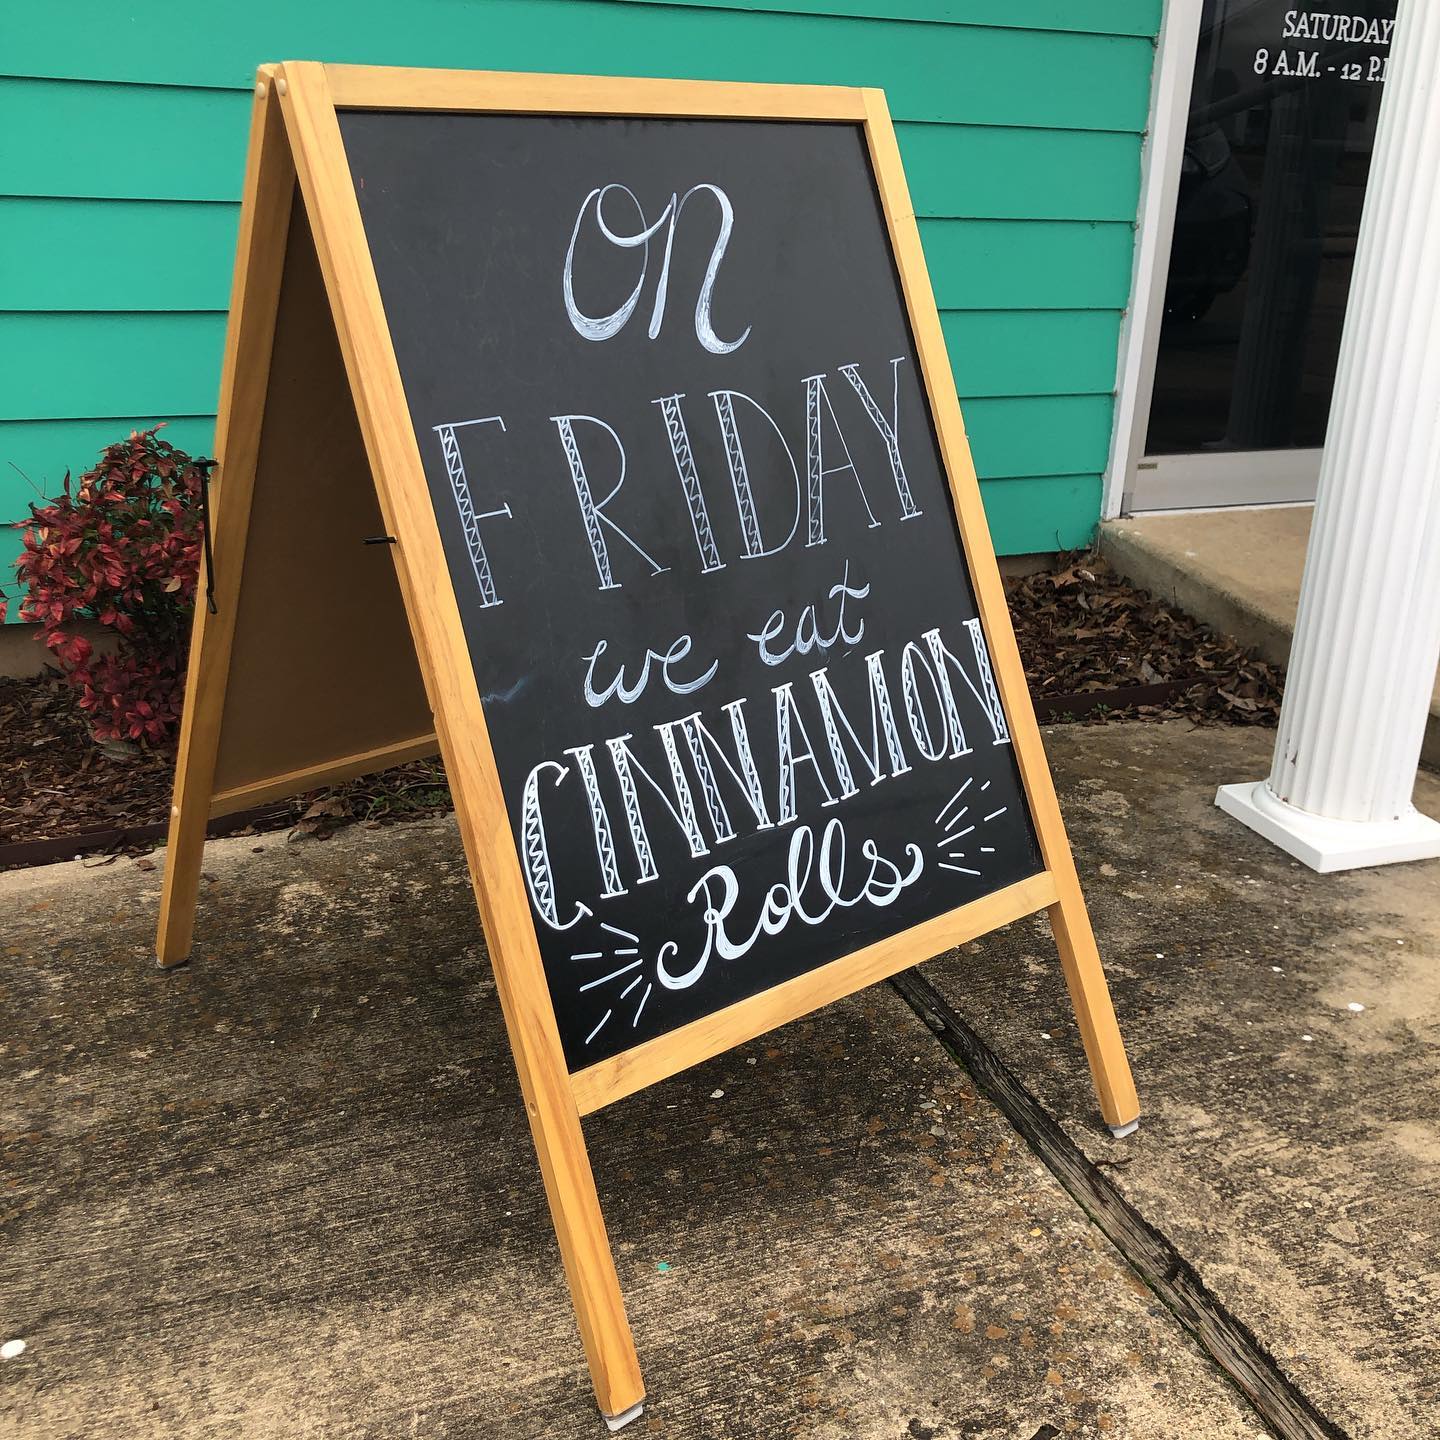 On
FRIDAY
we eat
CINNAMON
Rolls
SATURDAY
8 A.M. - 12 P.